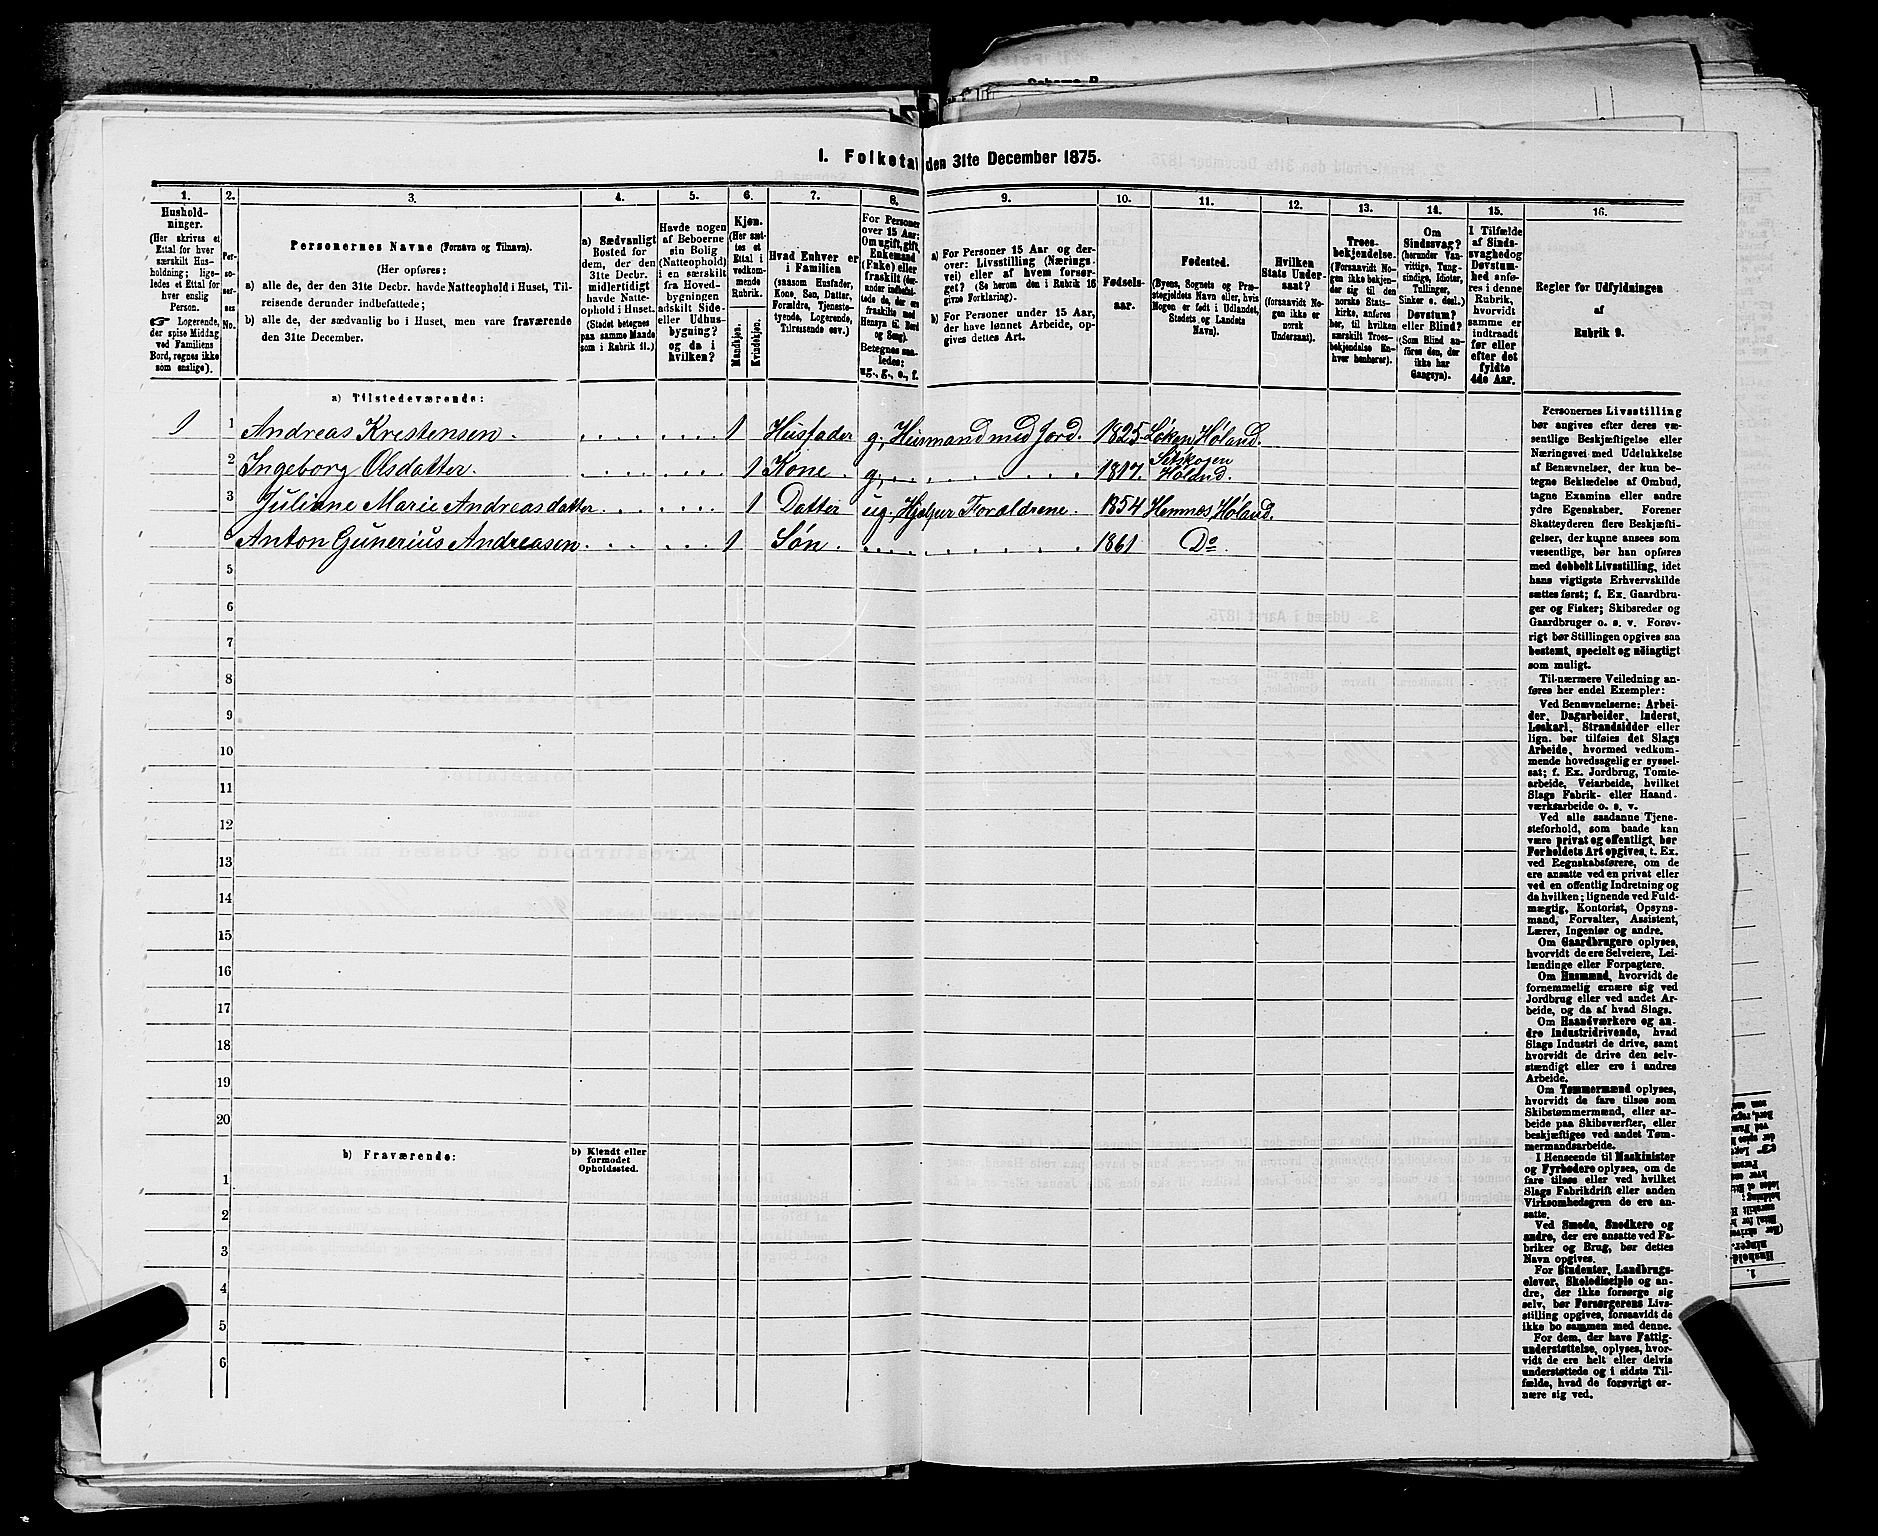 Schema B
1. Folketal den 31te December 1875.
1. 2. 3. 4. 5. 6. 7. 8. 9. 10. 11. 12. 13. 14. 15. 16.
Hushold-
ninger.
(Her skrives et
Ettal for hver
særskilt Hus-
holdning; lige-
ledes et Ettal for
hver enslig
Person.
☞ Logerende,
der spise Middag
ved Familiens
Bord, regnes ikke
som enslige).
Per-
so-
ner-
nes
No.
Personernes Navne (Fornavn og Tilnavn).
(Her opføres:
a) alle de, der den 31te Decbr. havde Natteophold i Huset, Til-
reisende derunder indbefattede;
b) alle de, der sædvanlig bo i Huset, men vare fraværende
den 31te December.
a) Sædvanligt
Bosted for
dem, der den
31te Decbr.
midlertidigt
havde Natte-
ophold i Huset.
(Stedet betegnes
paa samme Maade
som i Rubrik 11.)
Havde nogen
af Beboerne
sin Bolig
(Natteophold)
i en særskilt
fra Hoved-
bygningen
adskilt Side-
eller Udhus-
bygning?
og da i
hvilken?
Kjøn.
(Her sæt-
tes et
Ettal i
vedkom-
mende
Rubrik.
Mandkjøn.
Kvindekjøn.
Hvad Enhver er
i Familien
(saasom Husfader,
Kone, Søn, Datter,
Forældre, Tjeneste-
tyende, Logerende,
Tilreisende osv.)
For Personer
over 15 Aar:
Om ugift, gift,
Enkemand
(Enke) eller
fraskilt (der-
under indbefat-
tede de, der ere
fraskilte med
Hensyn til Bord
og Seng).
Betegnes saa-
ledes:
ug., g., e., f.
a) For Personer 15 Aar og der-
over: Livsstilling (Nærings-
vei) eller af hvem forsør-
get? (Se herom den i Rubrik 16
givne Forklaring).
b) For Personer under 15 Aar,
der have lønnet Arbeide, op-
gives dettes Art.
Fødsels-
aar.
Fødested.
(Byens, Sognets og Præ-
stegjeldets Navn eller, hvis
Nogen er født i Udlandet,
Stedets og Landets
Navn).
Hvilken
Stats Under-
saat?
(forsaavidt No-
gen ikke er
norsk
Undersaat).
Troes-
bekjendelse.
(Forsaavidt No-
gen ikke bekjen-
der sig til den
norske Stats-
kirke, anføres
her, til hvilken
særskilt Troes-
bekjendelse En-
hver henhører).
Om
Sindssvag?
(herunder Van-
vittige, Tung-
sindige, Idioter,
Tullinger,
Sinker o. desl.)
Døvstum?
eller Blind?
(Som Blind an-
føres den, der
ikke har
Gangsyn).
I Tilfælde
af Sinds-
svaghed og
Døvstum-
hed anfø-
res i denne
Rubrik,
hvorvidt
samme er
indtraadt
før eller
efter det
fyldte
4de Aar.
Regler for Udfyldningen
af
Rubrik 9.
a) Tilstedeværende:
1 1 Andreas Krestensen. 1 Husfader g. Husmand med Jord. 1825. Løken Høland.
2 Ingeborg Olsdatter. 1 Kone. g. 1817. Setskogen Høland.
3 Juliane Marie Andreasdatter. 1 Datter ug. Hjelper Forældrene. 1854 Hemnes, Høland.
Anton Gunerius Andreasen. 1 Søn. 1861 Do.
5
6
7
8
9
10
11
12
13
14
15
16
17
18
19
20
b) Fraværende:
b) Kjendt eller
formodet
Opholdssted.
1
2
3
4
5
6
Personernes Livsstilling
bør angives efter deres væ-
sentlige Beskjæftigelse eller
Næringsvei med Udelukkelse
af Benævnelser, der kun be-
tegne Beklædelse af Ombud,
tagne Examina eller andre
ydre Egenskaber. Forener
Skatteyderen flere Beskjæfti-
gelser, der kunne ansees som
væsentlige, bør han opføres
med dobbelt Livsstilling, idet
hans vigtigste Erhvervskilde
sættes først; f. Ex. Gaardbru-
ger og Fisker; Skibsreder og
Gaardbruger o. s. v. Forøv-
rigt bør Stillingen opgives saa
bestemt, specielt og nøiagtigt
som muligt.
Til nærmere Veiledning an-
føres her endel Exempler:
Ved Benævnelserne: Arbei-
der, Dagarbeider, Inderst,
Løskarl, Strandsidder eller
lign. bør tilføies det Slags
Arbeide, hvormed vedkom-
mende hovedsagelig er syssel-
sat; f. Ex. Jordbrug, Tomte-
arbeide, Veiarbeide, hvilket
Slags Fabrik- eller Haand-
værksarbeide o. s. v.
Ved alle saadanne Tjene-
steforhold, som baade kan
være privat og offentligt, bør
Forholdets Art opgives, t. Ex.
ved Regnskabsførere, om de
ere ansatte ved en privat eller
ved en offentlig Indretning og
da hvilken; lignende ved Fuld-
mægtig, Kontorist, Opsyns-
mand, Forvalter, Assistent,
Lærer, Ingeniør og andre.
Om Gaardbrugere oplyses,
hvorvidt de ere Selveiere, Lei-
lændinge eller Forpagtere.
Om Husmænd, hvorvidt de
fornemmelig ernære sig ved
Jordbrug eller ved andet Ar-
beide, og da af hvad Slags.
Om Haandværkere og an-
dre Industridrivende, hvad
Slags Industri de drive, samt
hvorvidt de drive den selv-
stændigt eller ere i andres
Arbeide.
Om Tømmermænd oplyses,
hvorvidt de fare tilsøs som
Skibstømmermænd, eller ar-
beide paa Skibsværfter, eller
beskjæftiges ved andet Tøm-
mermandsarbeide.
I Henseende til Maskinister
og Fyrbødere oplyses, om de
fare tilsøs eller ved hvilket
Slags Fabrikdrift eller anden
Virksomhedsgren de ere an-
satte.
Ved Smede, Snedkere og
andre, der ere ansatte ved Fa-
briker og Brug, bør dettes
Navn opgives.
For Studenter, Landbrugs-
elever, Skoledisciple og an-
dre, der ikke forsørge sig
selv, bør Forsørgerens Livs-
stilling opgives, forsaavidt de
ikke bo sammen med denne.
For dem, der have Fattig-
understøttelse, oplyses, hvor-
vidt de ere helt eller delvis
understøttede og i sidste Til-
fælde, hvad de forøvrigt er-
nære sig ved.